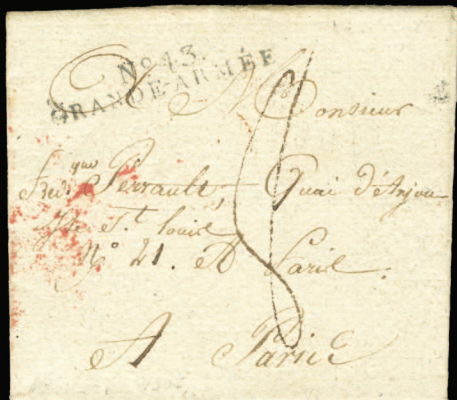 No. 13.
GRANDE-ARMÉE
A Monsieur
Fred.que Perrault, Quai d'Anjou
Isle St. Louis
No. 21. A Paris.
A Paris